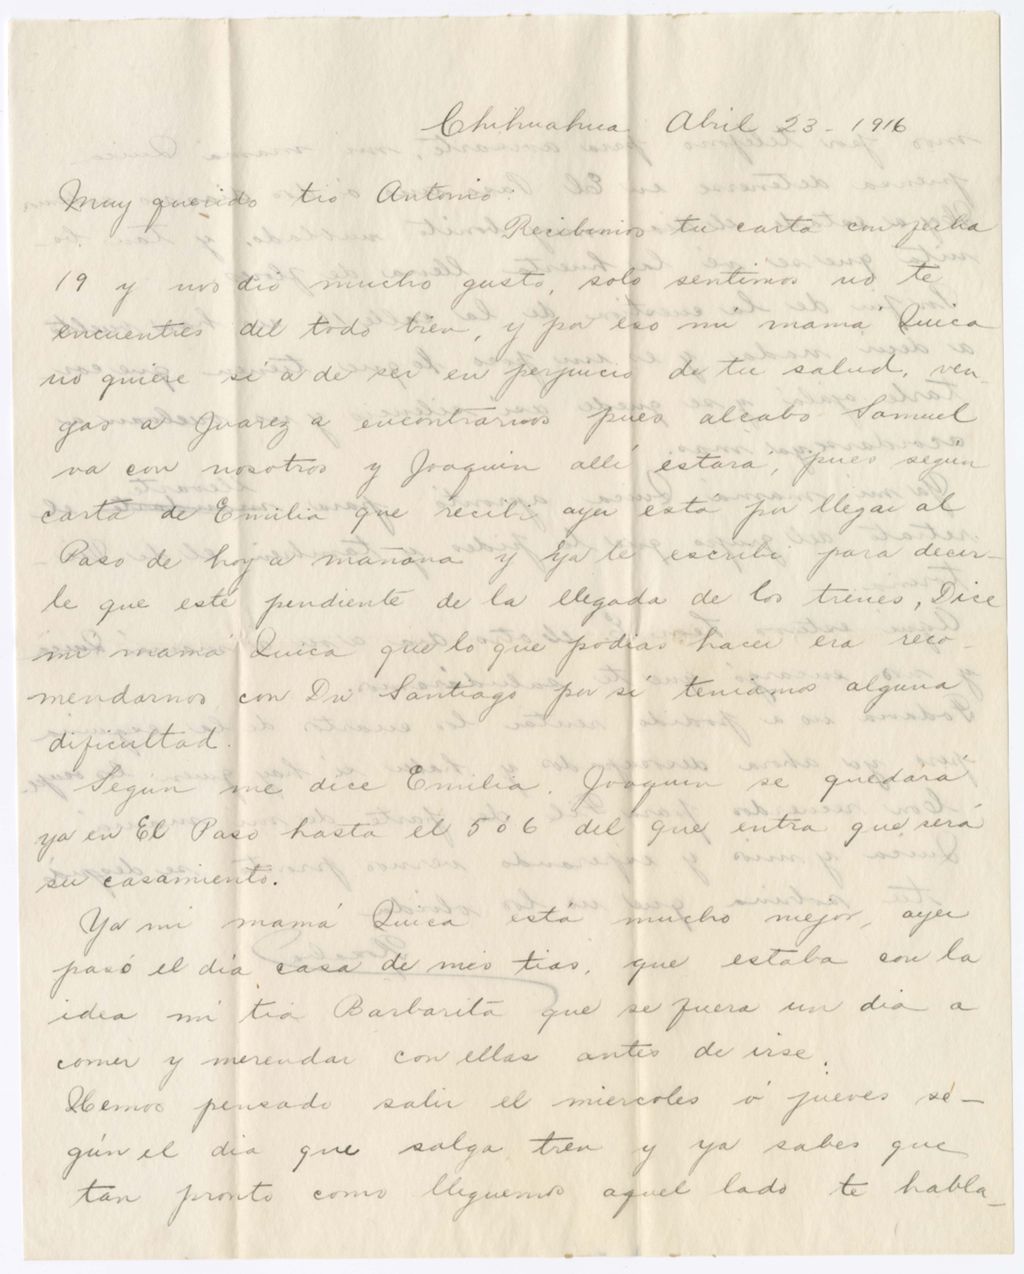 Chihuahua Abril 23 - 1916
Muy querido tio Antonio:
Recibimos tu carta con fecha
19 y nos dio mucho gusto, solo sentimos no te
encuentres del todo bien, y por eso mi mamá Quica
no quiere si a de ser en perjuicio de tu salud, ven-
gas a Juarez a encontrarnos pues alcabo Samuel
va con nosotros y Joaquin allí estara, pues según
carta de Emilia que recibi ayer esta por llegar al
Paso de hoy a mañana y ya le escribi para decir-
le que esté pendiente de la llegada de los trenes, Dice
mi mamá Quica que lo que podias hacer era reco-
mendarnos con Dn Santiago por si teniamos alguna
dificultad.
Según me dice Emilia. Joaquin se quedará
ya en El Paso hasta el 5 ó 6 del que entra que será
su casamiento.
Ya mi mamá Quica está mucho mejor, ayer
pasó el día casa de mis tias, que estaba con la
idea mi tia Barbarita que se fuera un dia a
comer y merendar con ellas antes de irse.
Hemos pensado salir el miercoles ó jueves se-
gún el dia que salga tren y ya sabes que
tan pronto como lleguemos aquel lado te habla-